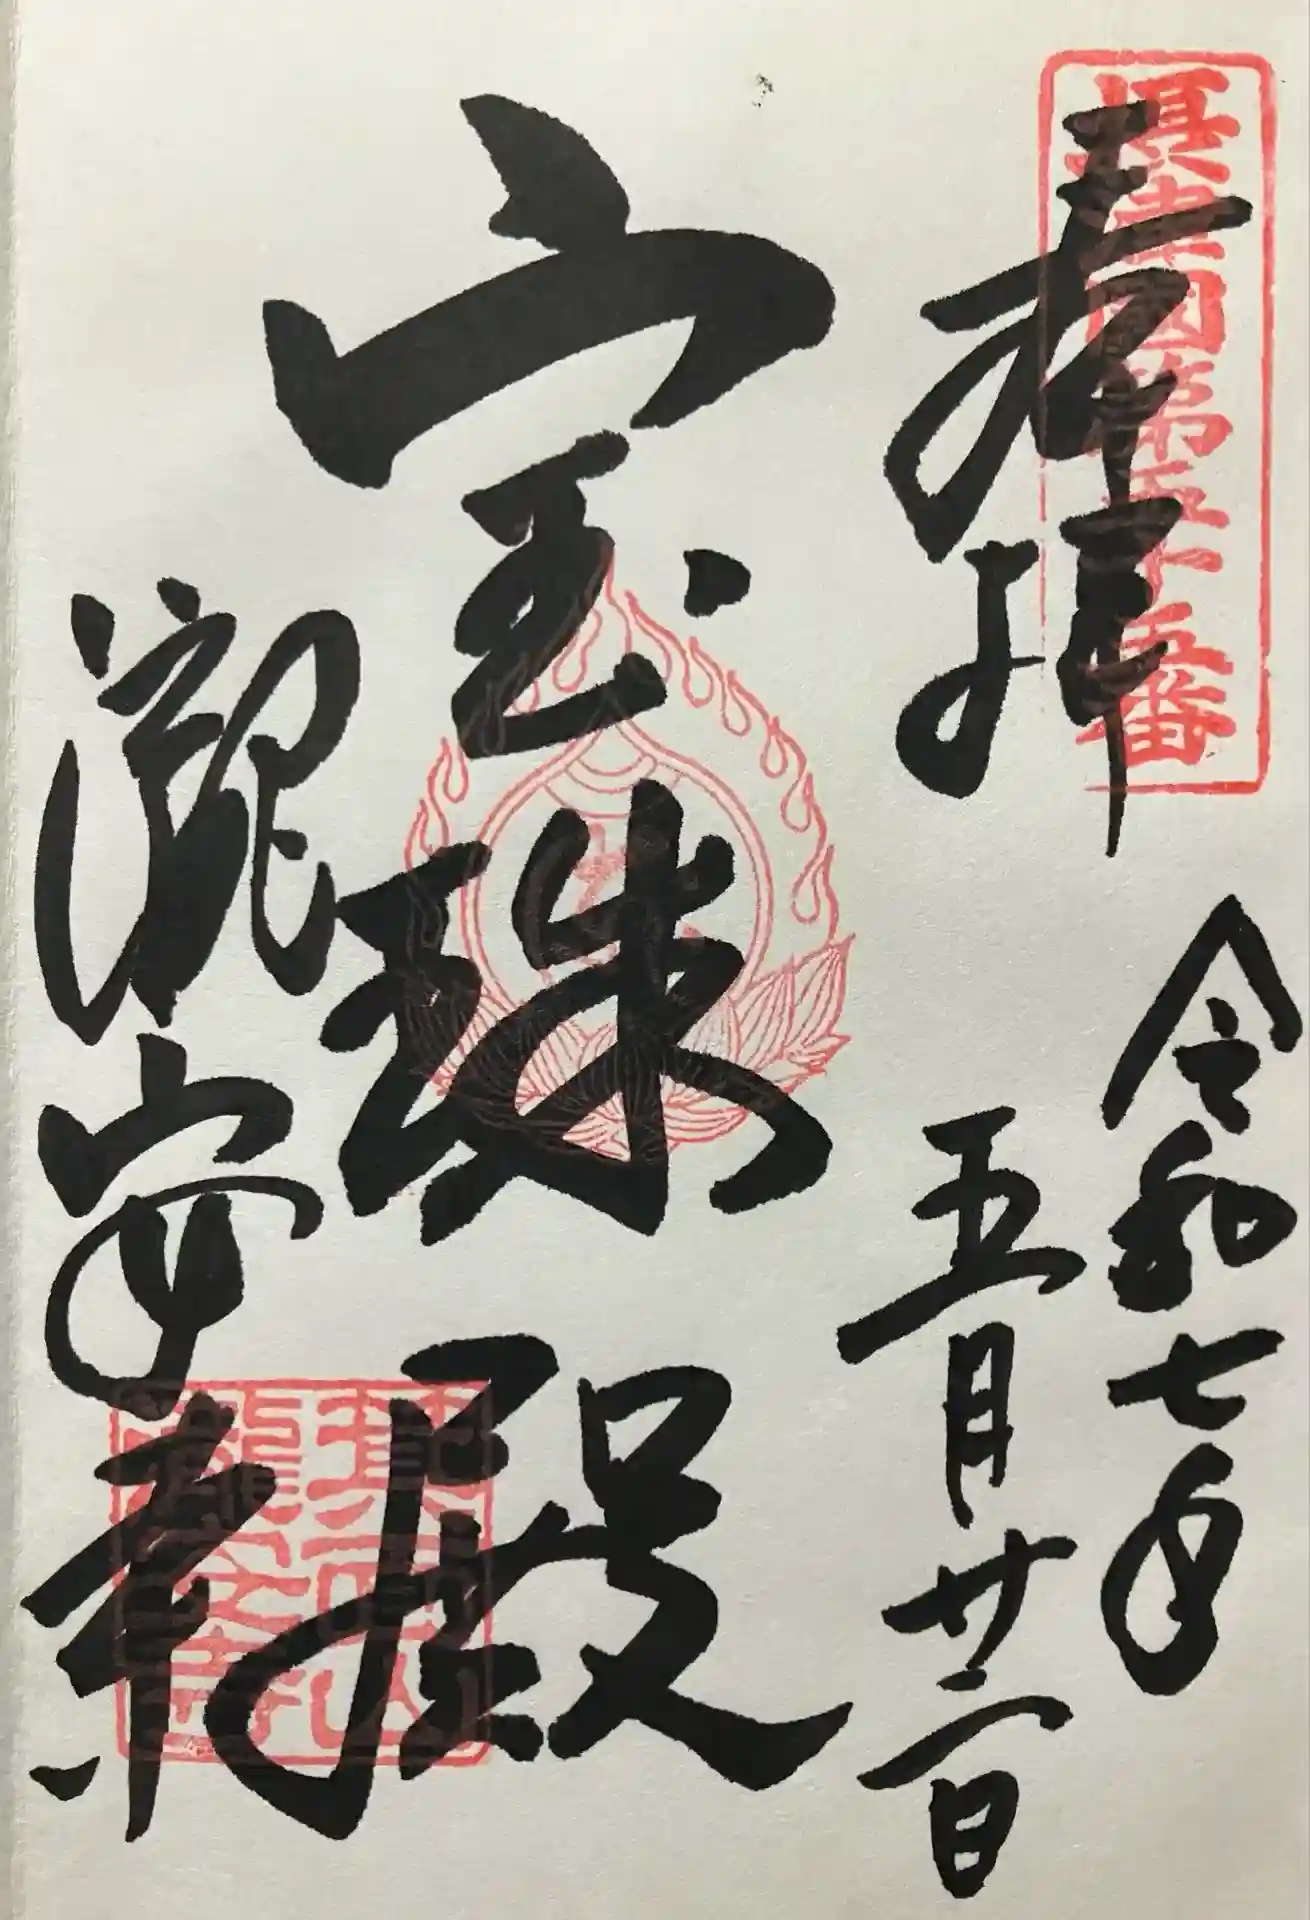 攝津國第五十五番
奉拝
令和七年
五月廿二日
宝珠殿
瀧安寺
箕面山
瀧安寺